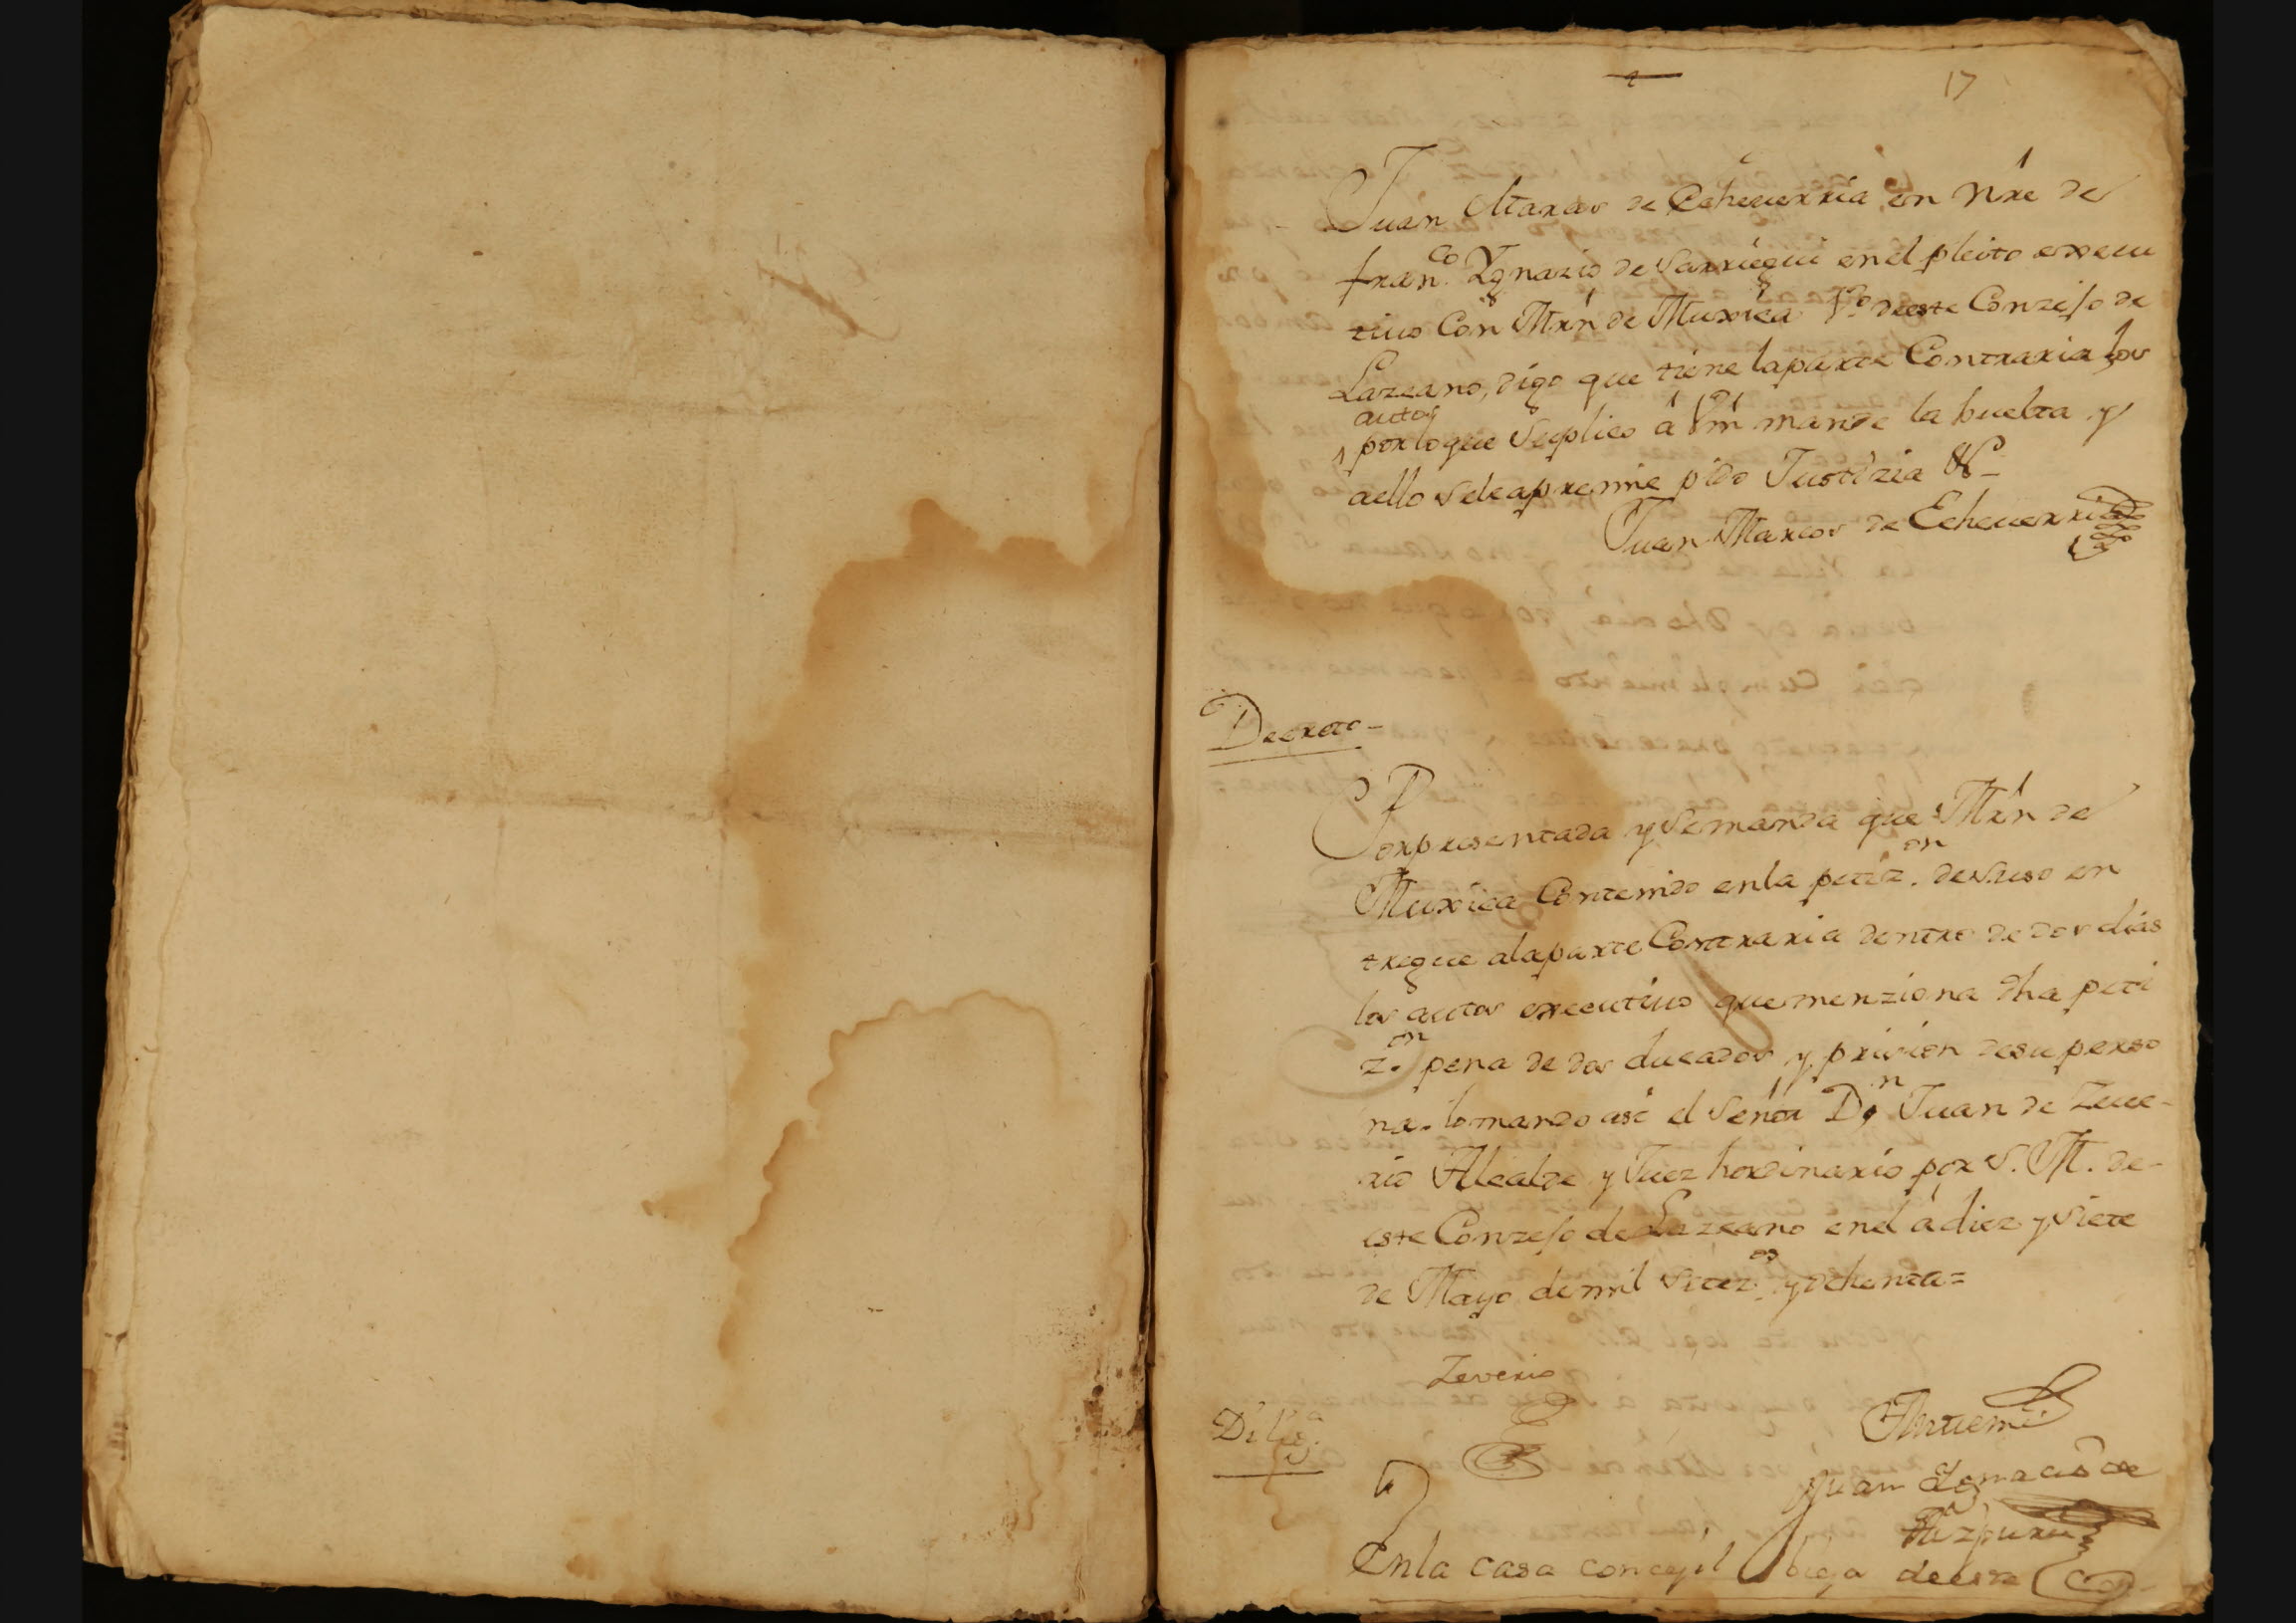 17
Juan Marcos de Echeuerria en Nr̃e de
fran.co Ygnazio de Sarriegui en el pleito execu
tiuo Con Mrn̄ de Muxica V.o deeste Conzejo de
Lazcano, digo que tiene laparte Contraria los
autos
porloque Suplico á Vm̄ mande la buelta y
aello Seleapremie pido Justizia &c
Juan Marcos de Echeuerria
Decreto
Porpresentada y Semanda que Mrn̄ de
Muxica Contenido enla petiz.on desuso en
tregue alaparte Contraria dentro de dos dias
los autos executiuo quemenziona dha peti
z.on pena de dos ducados y prision desu perso
na. lomando asi el Señor D.n Juan de Zeue-
rio Alcalde y Juez hordinario por S. M. de
este Conzejo de Lazcano enel á diez y Siete
de Mayo demil Setez.os yochenta=
Zeverio
Antemi
Dilig.a
Juan Ygnacio de
Aizpuru
Enla casa concejil bieja deeste Con-